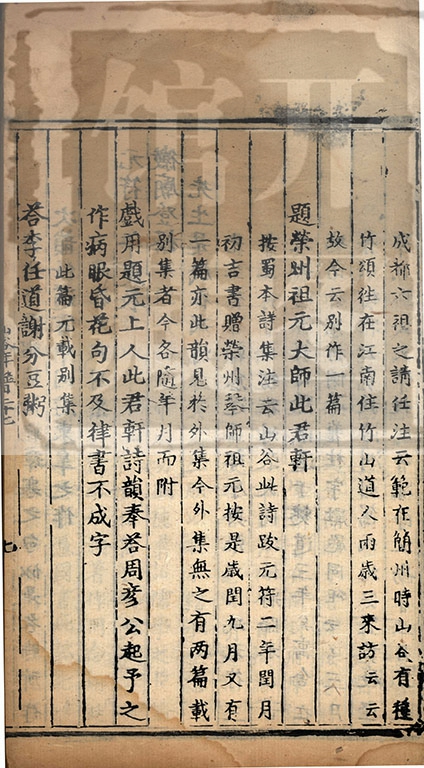 成都六祖之請任注云範在簡州時山谷有種
竹頌往在江南住竹山道人兩歲三來訪云云
故今云別作一篇
題榮州祖元大師此君軒
按蜀本詩集注云山谷此詩跋元符二年閏月
初吉書贈榮州琴師祖元按是歲閏九月又有
一篇亦此韻見於外集今外集無之有兩篇載
別集者今各隨年月而附
戲用題元上人此君軒詩韻奉荅周彥公起予之
作病眼昏花句不及律書不成字
此篇元載別集
荅李任道謝分豆粥
七